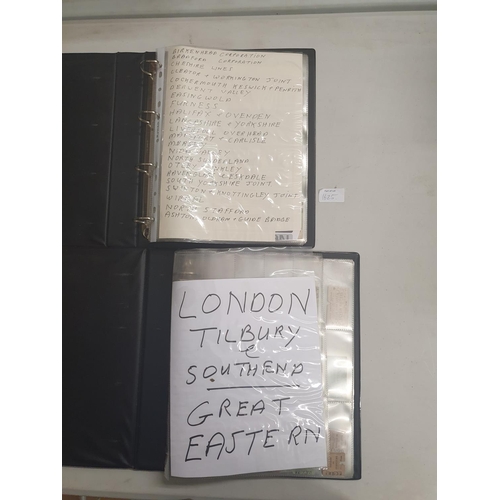 BIRKENHEAD CORPORATION
BRADFORD CORPORATION
CHESHIRE LINES
CLEATOR + WORKINGTON JOINT
COCKERMOUTH KESWICK + PENRITH
DERWENT VALLEY
EASINGWOLD
FURNESS
HALIFAX + OVENDEN
LANCASHIRE + YORKSHIRE
LIVERPOOL OVERHEAD
MARYPORT + CARLISLE
MERSEY
NIDD VALLEY
NORTH SUNDERLAND
OTLEY + ILKLEY
RAVENGLASS + ESKDALE
SOUTH YORKSHIRE JOINT
SWINTON + KNOTTINGLEY JOINT
WIRRAL
NORTH STAFFORD
ASHTON OLDHAM + GUIDE BRIDGE
LONDON
TILBURY
&
SOUTHEND
GREAT
EASTERN